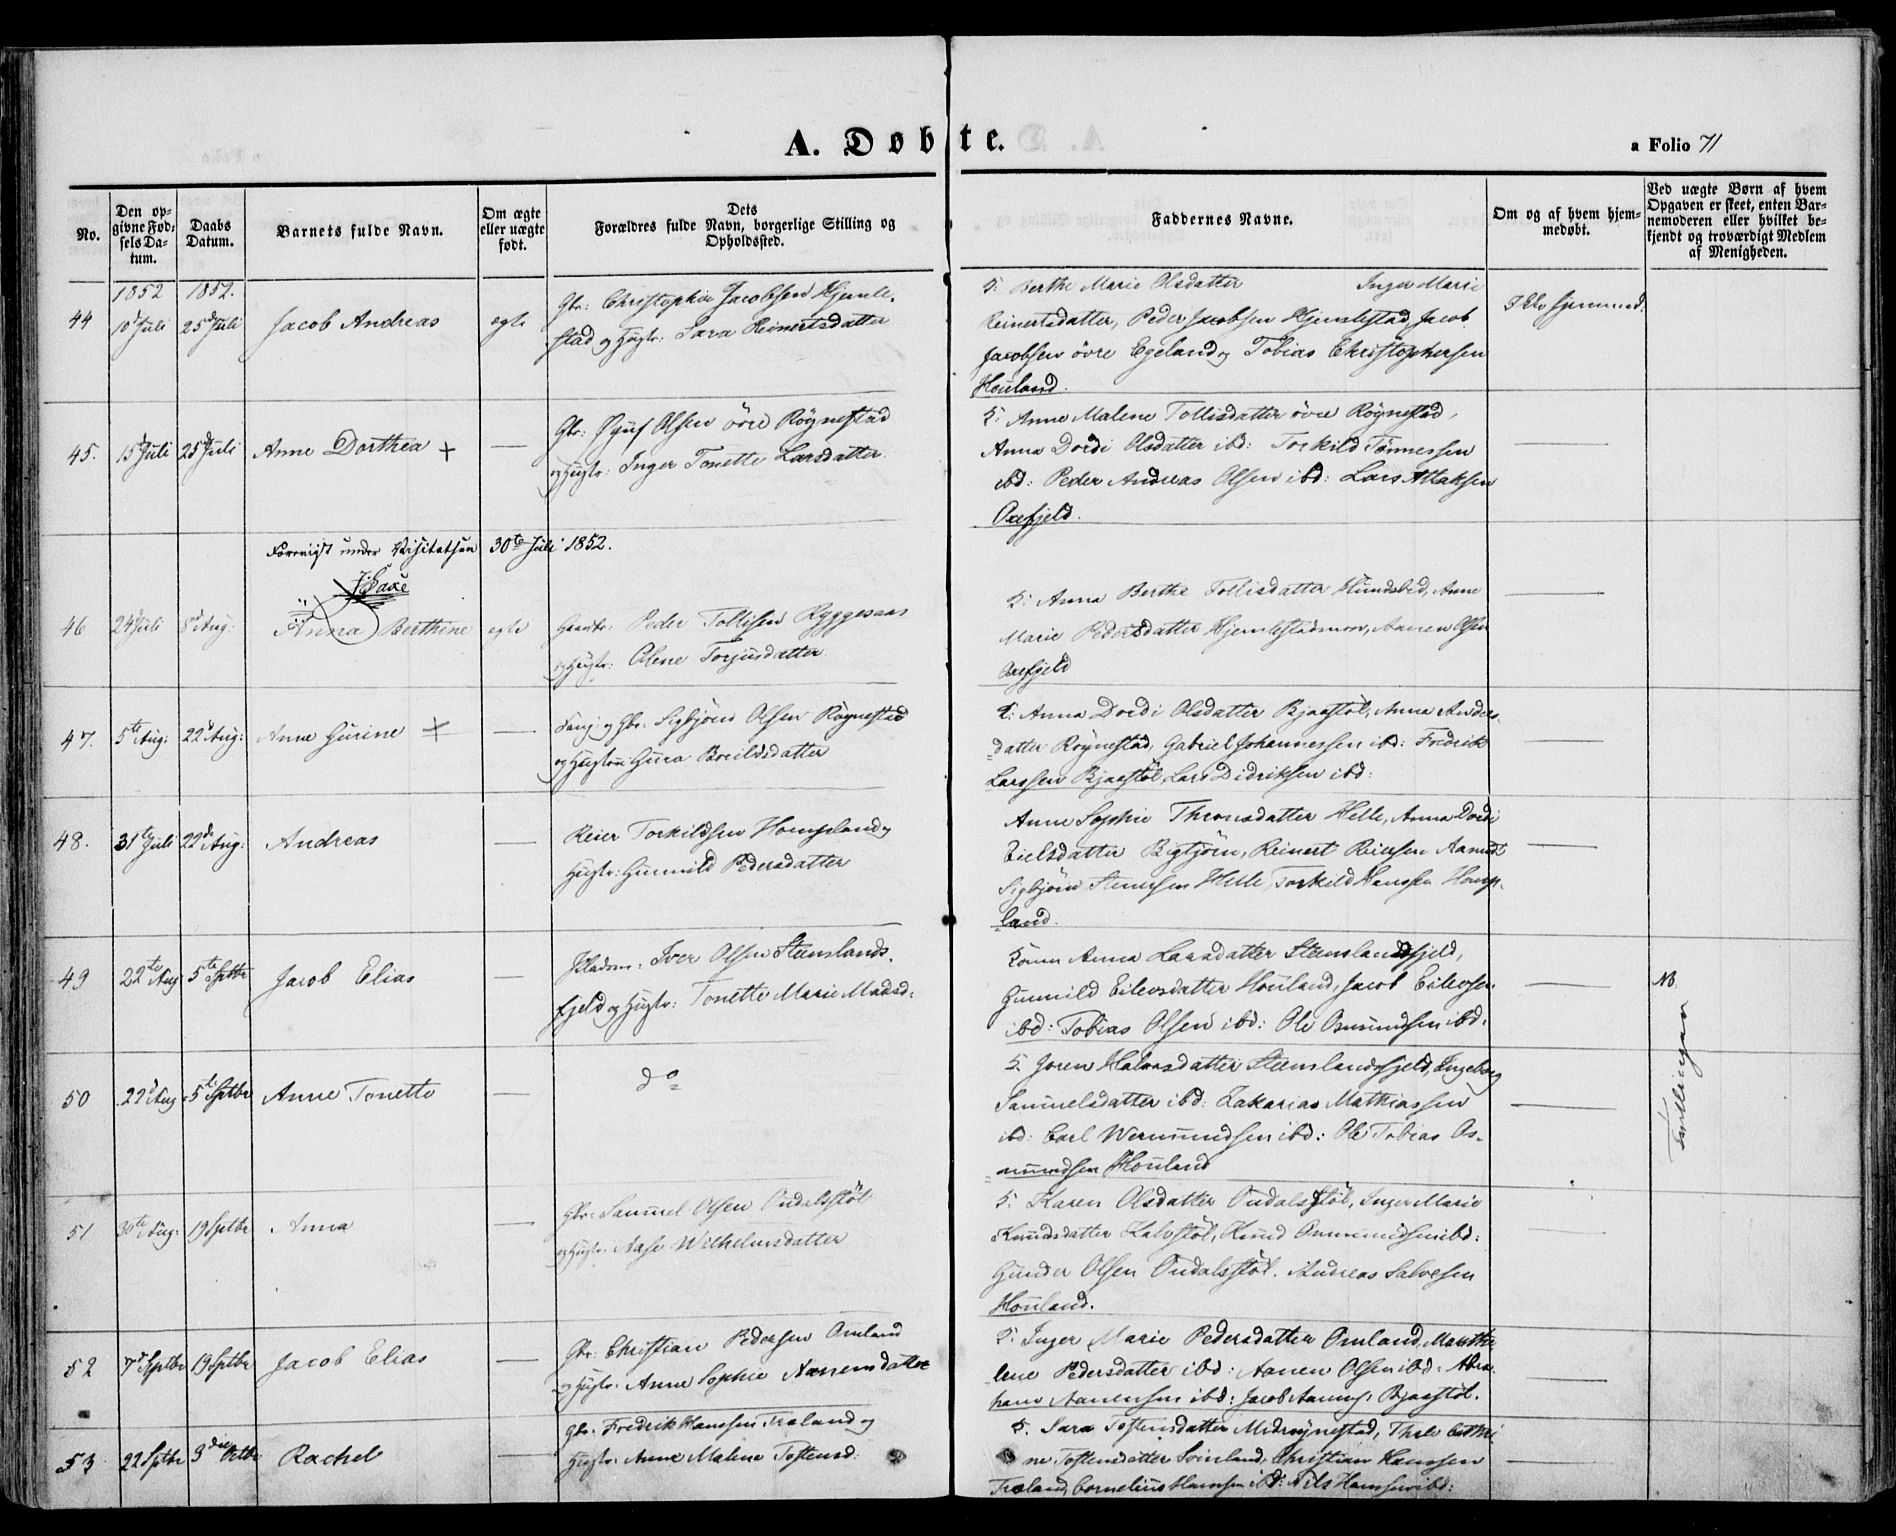 A. Døbte.
a Folio 71
No.
Den op-
givne Fød-
sels Da-
tum.
Daabs
Datum.
Barnets fulde Navn.
Om ægte
eller uægte
født.
Dets
Forældres fulde Navn, borgerlige Stilling og
Opholdssted.
Faddernes Navne.
Om og af hvem hjem-
medøbt.
Ved uægte Børn af hvem
Opgaven er skeet, enten Bar-
nemoderen eller hvilket be-
kjendt og troværdigt Medlem
af Menigheden.
1852 1852.
44 10d Juli 25d Juli Jacob Andreas egte
Gbr: Christopher Jacobsen Hjemle-
stad og Hustr: Sara Reinertsdatter
F: Berthe Marie Olsdatter Inger Marie
Reinertsdatter, Peder Jacobsen Hjemlestad, Jacob
Jacobsen övre Egeland og Tobias Christophersen
Houland.
Ikke hjemmed:
45. 15d Juli 25d Juli Anne Dorthea + —
Gbr: Olsen övre Röynestad
og Hustr: Inger Tonette Larsdatter.
F: Anne Malene Tollisdatter övre Röynestad,
Anna Dordi Olsdatter ibd: Torkild Tönnessen
ibd: Peder Andreas Olsen ibd: Lars Attaksen
Oxefjeld.
Foreviist under Visitatsen 30te Juli 1852.
46 24d Juli 8d Aug: Anna Berthine egte
Peder Tollisen Ryggesaas
og Hustr: Olene Torjusdatter.
F: Anna Berthe Tollisdatter Hundsbed, Anne
Marie Pedersdatter Hjemlestadmoen, Aanen Olsen
Oxefjeld
47. 5te Aug: 22d Aug: Anne Gurine + —
og Gbr: Sigbjörn Olsen Röynestad
og Hustru Gura Boeildsdatter
F: Anna Dordi Olsdatter Bjaastöl, Anna Anders-
datter Röynestad, Gabriel Johannessen ibd: Fredrik
Larssen Bjaastöl, Lars Didriksen ibd:
48. 31te Juli 22de Aug: Andreas —
Reier Torkildsen Homsland og
Hustr: Gunnild Pedersdatter
Anne Sophie Thronsdatter Helle, Anna Dordi
Eielsdatter Bigtjörn, Reinert Reiersen Aamdt
Sigbjörn Helle, Torkild Hanssen Homs-
land.
49 22te Aug 5te Sptbr Jacob Elias —
Pladsm: Iver Olsen Steenslands-
fjeld og Hustr: Tonette Marie Madsd:
Anna Larsdatter Steenslandsfjeld,
Gunnild Eilevsdatter Houland, Jacob Eilevsen
ibd: Tobias Olsen ibd: Ole Osmundsen ibd:
NB.
50 22d Aug 5te Sptbr Anne Tonette —
do
F. Joren Halvorsdatter Steenslandsfjeld, Ingeborg
Samuelsdatter ibd: Zakarias Mathiassen
ibd: Carl Wermundsen ibd: Ole Tobias Os-
mundsen Houland
Tvillinger
51 30te Aug: 19 Sptbr Anna —
Gbr: Samuel Olsen Oudalsstöl
og Hustr: Aase Wilhelmsdatter
F. Karen Olsdatter Oudalsstöl, Inger Marie
Knudsdatter Kalvstöl, Knud Osmundsen ibd:
Gunder Olsen Oudalsstöl. Andreas Salvesen
Houland.
52 7d Sptbr 19 Sptbr Jacob Elias —
Gbr: Christian Pedersen Omland
og Hustr: Anne Sophie Aanensdatter
F: Inger Marie Pedersdatter Omland, Marthe
lene Pedersdatter ibd: Aanen Olsen ibd: Abra-
ham Aanensen ibd: Jacob Bjaastöl.
53 22 Sptbr 3die Octbr Rachel —
Gbr. Fredrik Hanssen Træland og
Hustr: Anne Malene Tostensd:
F. Sara Tostensdatter Midröynestad, Thale Cathri
ne Tostensdatter Svinland, Christian Hanssen
Træland, Cornelius Hanssen ibd: Nils Hanssen ibd: